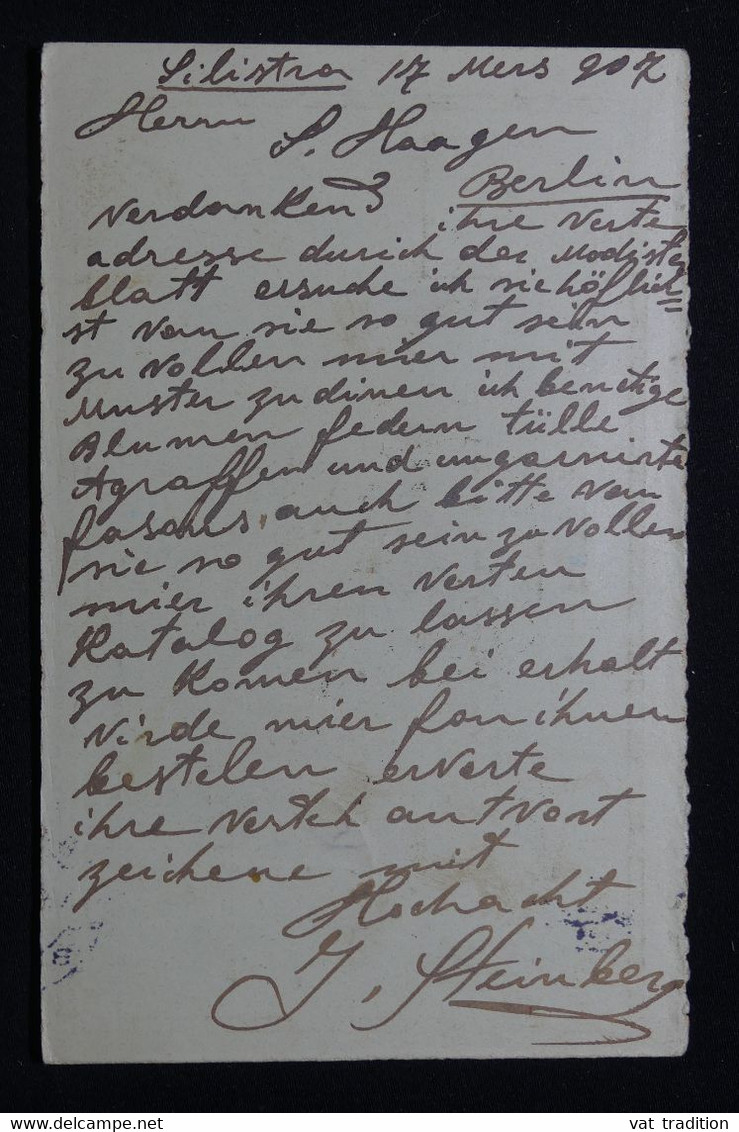 Silistra 17 Mers 907
Herrn
S. Haagen
Berlin
Verdankend ihre Verte
adresse durich der Modiste
blatt ersuche ich sie höflich=
st van sie so gut sein
zu vollen mier mit
Muster zu dinen ich benötige
Blumen federn tülle
Agraffen und ungarnirte
fasons auch bitte van
sie so gut sein zu vollen
mier ihren Verten
Katalog zu lassen
zu komen bei erhalt
Virde mier fon ihnen
bestelen erverte
ihre Verth antvort
zeichene mit
Hochacht
J. Steinberg
www.delcampe.net
vat tradition